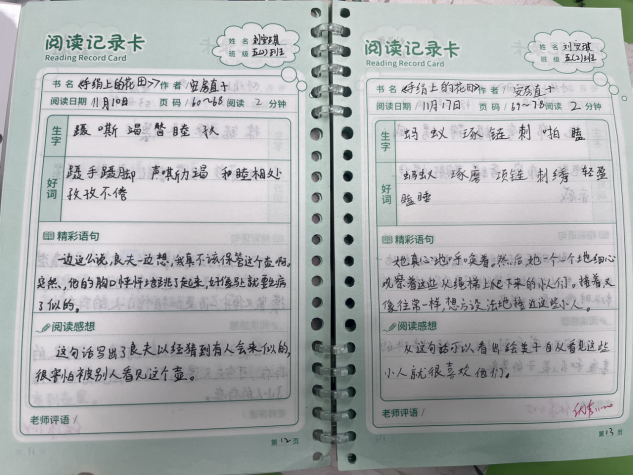 阅读记录卡
Reading Record Card
姓名 刘宝琪
班级 五(2)班
书名 手绢上的花田>> 作者 安房直子
阅读日期 11月10日 页码 60~68 阅读 2 分钟
生字
蹑 嘶 竭 睦 孜
好词
蹑手蹑脚 声嘶力竭 和睦相处
孜孜不倦
精彩语句
一边这么说,良夫一边想,我真不该保管这个壶啊。
突然,他的胸口怦怦地跳了起来,好像马上就要生病
了似的。
阅读感想
这句话写出了良夫以经猜到有人会来似的,
很害怕被别人看见这个壶。
老师评语
第12页
阅读记录卡
Reading Record Card
姓名 刘宝琪
班级 五(2)班
书名 手绢上的花田>> 作者 安房直子
阅读日期 11月17日 页码 69~78 阅读 2 分钟
生字
蚂 蚁 琢 链 刺 啪 瞌
好词
蚂蚁 琢磨 项链 刺绣 轻盈
瞌睡
精彩语句
她真心地呼唤着。然后,她一个个地细心
观察着这些从绳梯上爬下来的小人们。接着又
像往常一样,想方设法地接近这些小人。
阅读感想
从这句话可以看出 自从看见这些
小人就很喜欢他们。
老师评语
第13页